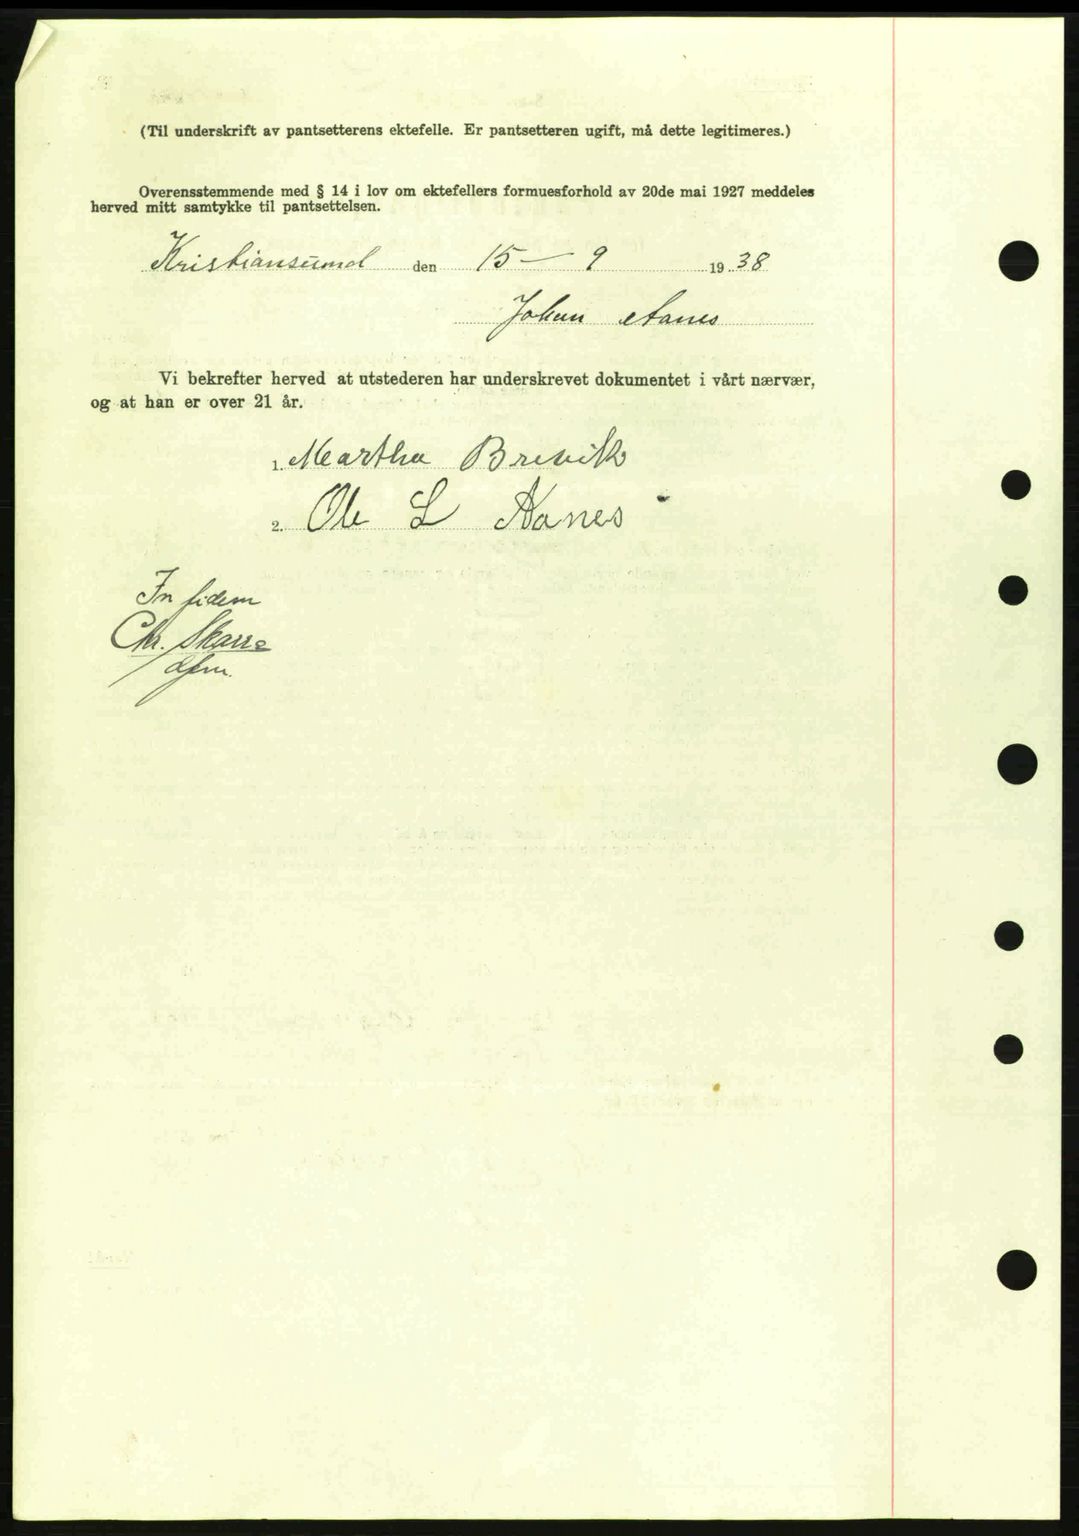 (Til underskrift av pantsetterens ektefelle. Er pantsetteren ugift, må dette legitimeres.)
Overensstemmende med § 14 i lov om ektefellers formuesforhold av 20de mai 1927 meddeles
herved mitt samtykke til pantsettelsen.
Kristiansund den 15 – 9 1938
Johan Aanes
Vi bekrefter herved at utstederen har underskrevet dokumentet i vårt nærvær,
og at han er over 21 år.
1. Martha Brevik
2. Ole L Aanes
In fidem
Chr. Skarre